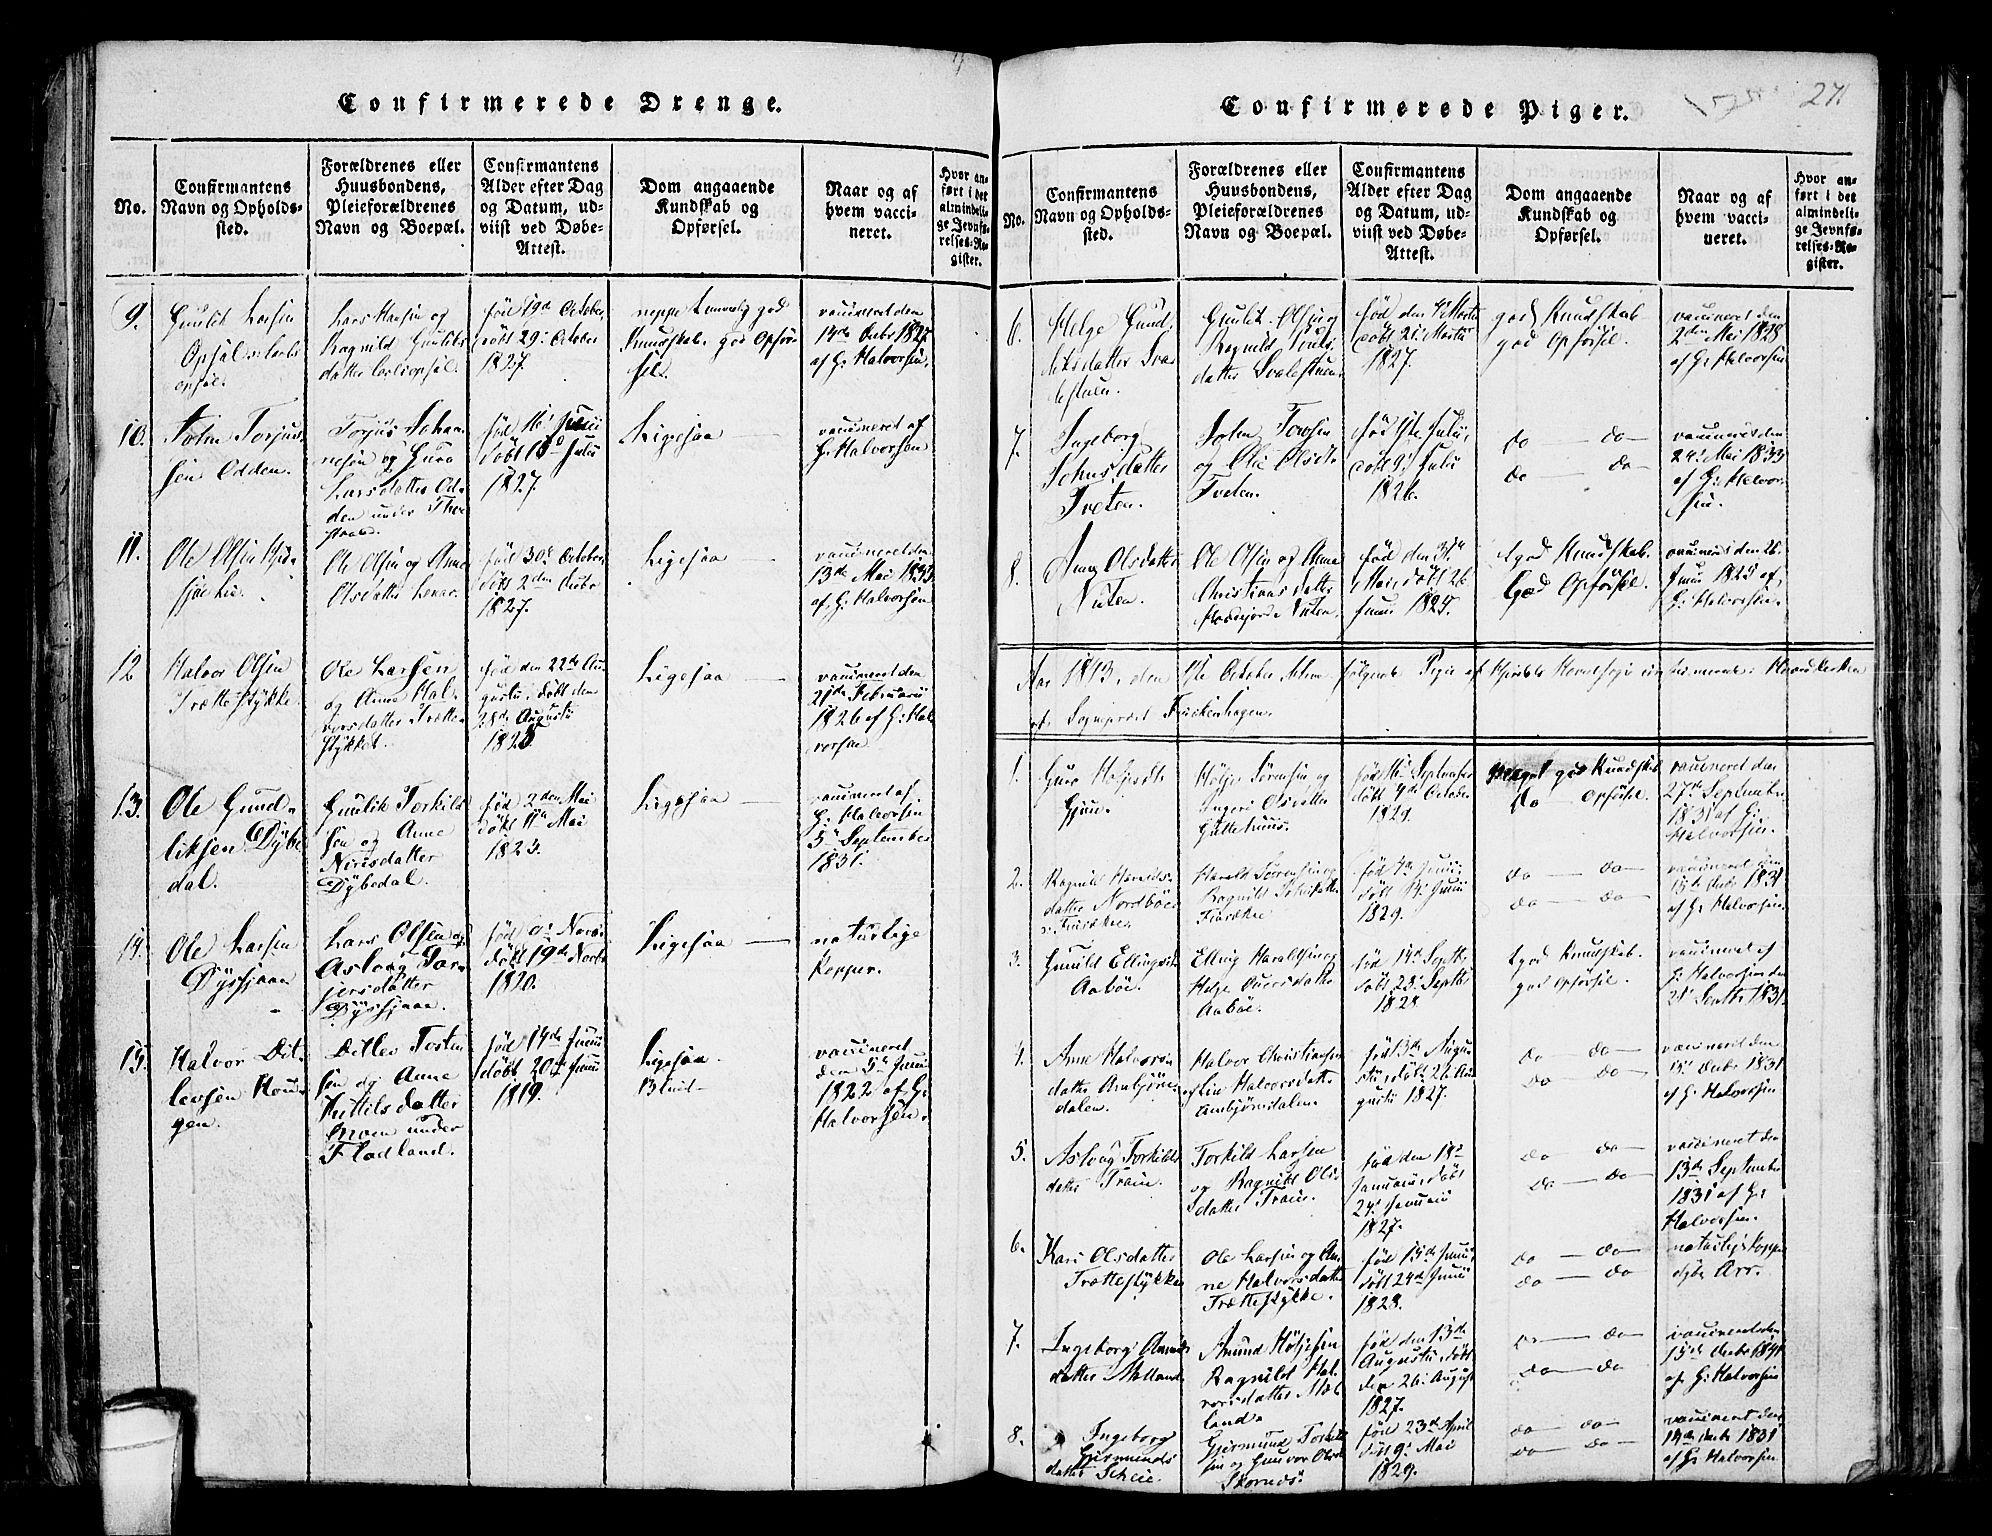 Confirmerede Drenge.
No.
Confirmantens
Navn og Opholds-
sted.
Forældrenes eller
Huusbondens,
Pleieforældrenes
Navn og Boepæl.
Confirmantens
Alder efter Dag
og Datum, ud-
viist ved Døbe-
Attest.
Dom angaaende
Kundskab og
Opførsel.
Naar og af
hvem vacci-
neret.
Hvor an-
ført i det
almindeli-
ge Jevnfø-
relses-Re-
gister.
9.
Gunlik Larsen
Lars Hansen og
Ragnild Gunliks
datter
fød 19de October
døbt 29: October
1827.
Kundskab god Opfør-
sel.
vaccineret den
14de Octbr 1827
af G: Halvorsen.
10.
John Torjus-
sen Odden.
Torjus Johan-
nesen og Guro
Larsdatter Od-
den under
fød 16 Juni
døbt 15d Julii
1827.
Ligesaa —
vaccineret af
G. Halvorsen
11.
Ole Olsen
Ole Olsen og Anne
Olsdatter
fød 30d October
døbt 2den Octbr
1827.
Ligesaa —
vaccineret den
13de Mai 1833
af G: Halvorsen
12
Halvor Olsen
Trættestykke.
Ole Larsen
og Anne Hal-
vorsdatter Trætte-
stykket.
fød den 22de Au-
gusti, døbt den
28de Augusti
1825.
Ligesaa —
vaccineret den
21de Februarii
1826 af G: Hal-
vorsen
13.
Ole Gund-
liksen Dybe-
dal.
Gunlik Torkild-
sen og Anne
Nirisdatter
Dybedal.
fød 2den Mai
døbt 11d Mai
1823.
Ligesaa —
vaccineret af
G: Halvorsen
5d September
1831.
14.
Ole Larsen
Dysjaan
Lars Olsen og
Aslaug Tor-
jersdatter
Dysjaan.
døbt 19de Novbr
1820.
Ligesaa —
naturlige
Kopper.
15.
Halvor Dit-
levsen Hou-
gen.
Ditlev Tosten-
sen og Anne
Kittilsdatter
Moen under
Fladland.
fød 14de Junii
døbt 20de Junii
1819.
Ligesaa.
Blind —
vaccineret
den 5te Junii
1822 af G:
Halvorsen.
Confirmerede Piger.
271
No.
Confirmantens
Navn og Opholds-
sted.
Forældrenes eller
Huusbondens,
Pleieforældrenes
Navn og Boepæl.
Confirmantens
Alder efter Dag
og Datum, ud-
viist ved Døbe-
Attest.
Dom angaaende
Kundskab og
Opførsel.
Naar og af
hvem vacci-
neret.
Hvor an-
ført i det
almindeli-
ge Jevnfø-
relses-Re-
gister.
6.
Helge Gund-
liksdatter Sva-
lestuen.
Gunlik Olsen og
Ragnild
datter Svalestuen
fød den 4d Martii
døbt 21: Martii
1827.
god Kundskab
god Opførsel.
vaccineret den
2den Mai 1828
af G: Halvorsen.
7.
Ingeborg
Johnsdatter
Tveten.
John
og Olsdtr
Tveten.
fød 1ste Julii,
døbt 9: Julii
1826.
do — do —
do — do —
vaccineret den
24: Mai 1833
af G: Halvor-
sen.
8.
Anne Olsdatter
Nuten.
Ole Olsen og Anna
Christiansdatter
Nuten.
fød den 31d
Mai, døbt 26
Junii 1825.
god Kundskab.
God Opførsel.
vaccineret den 26.
Junii 1825 af
G: Halvorsen.
Aar 1843, den 1ste October følgende Piger af
af Sogneprest Frickenhagen.
1.
Guro Helgesdtr
Helge Sørensen og
Ingeri Olsdatter
fød 16 September
døbt 4d October
1829.
Meget god Kundskab
do — Opførsel.
vaccineret den
27d September
1831 af G:
Halvorsen.
2.
Ragnild Haralds-
datter Nordbøe
Harald Sørensen og
Ragnild
fød 4d Junii
døbt 14: Junii
1829.
do — do —
do — do
vaccineret den
15de Octbr 1831
af G: Halvorsen.
3.
Gunild Ellingsdtr
Aabøe.
Elling Haraldsen og
Helge datter
Aabøe.
fød 14d Septbr
døbt 28: Septbr
1828
god Kundskab.
god Opførsel.
vaccineret af
G: Halvorsen den
21 Septbr 1831.
4.
Anne Halvors-
datter Ambjørns-
dalen.
Halvor Christiansen
og Liv Halvorsdatter
Ambjørnsdalen.
fød 13de Augu-
sti, døbt 26 Au-
gusti 1827.
do — do —
do — do —
vaccineret den
15: Octbr 1831
af G: Halvorsen
5.
Aslaug Torkilds-
datter Train.
Torkild Larsen
og Ragnild Ols-
datter Traen.
fød den 18d
Januarii, døbt
24d Januarii
1827.
do — do —
do — do —
vaccineret den
13de September
1831 af G:
Halvorsen.
6.
Kari Olsdatter
Trættestykken
Ole Larsen og An-
ne Halvorsdatter
Trættestykke.
fød 15de Junii,
døbt 24de Junii
1828.
do — do —
do — do
naturlig Kopper
dybe Arr.
7.
Ingeborg Amunds-
datter Mælland.
Amund Høljesen
Ragnild Hal-
vorsdatter Mæl-
land.
fød den 13de
Augusti døbt
den 26: August
1827.
do — do
do — do
vaccineret den
15de Octbr 1841
af G: Halvorsen
8.
Ingeborg
Gjermunds-
datter Scheie.
Gjermund Torkild-
sen og Gunvor Olsdtr
fød 23d April
døbt 9: Mai
1829.
do — do —
do — do
vaccineret den
14de Octbr 1831
af G: Halvorsen